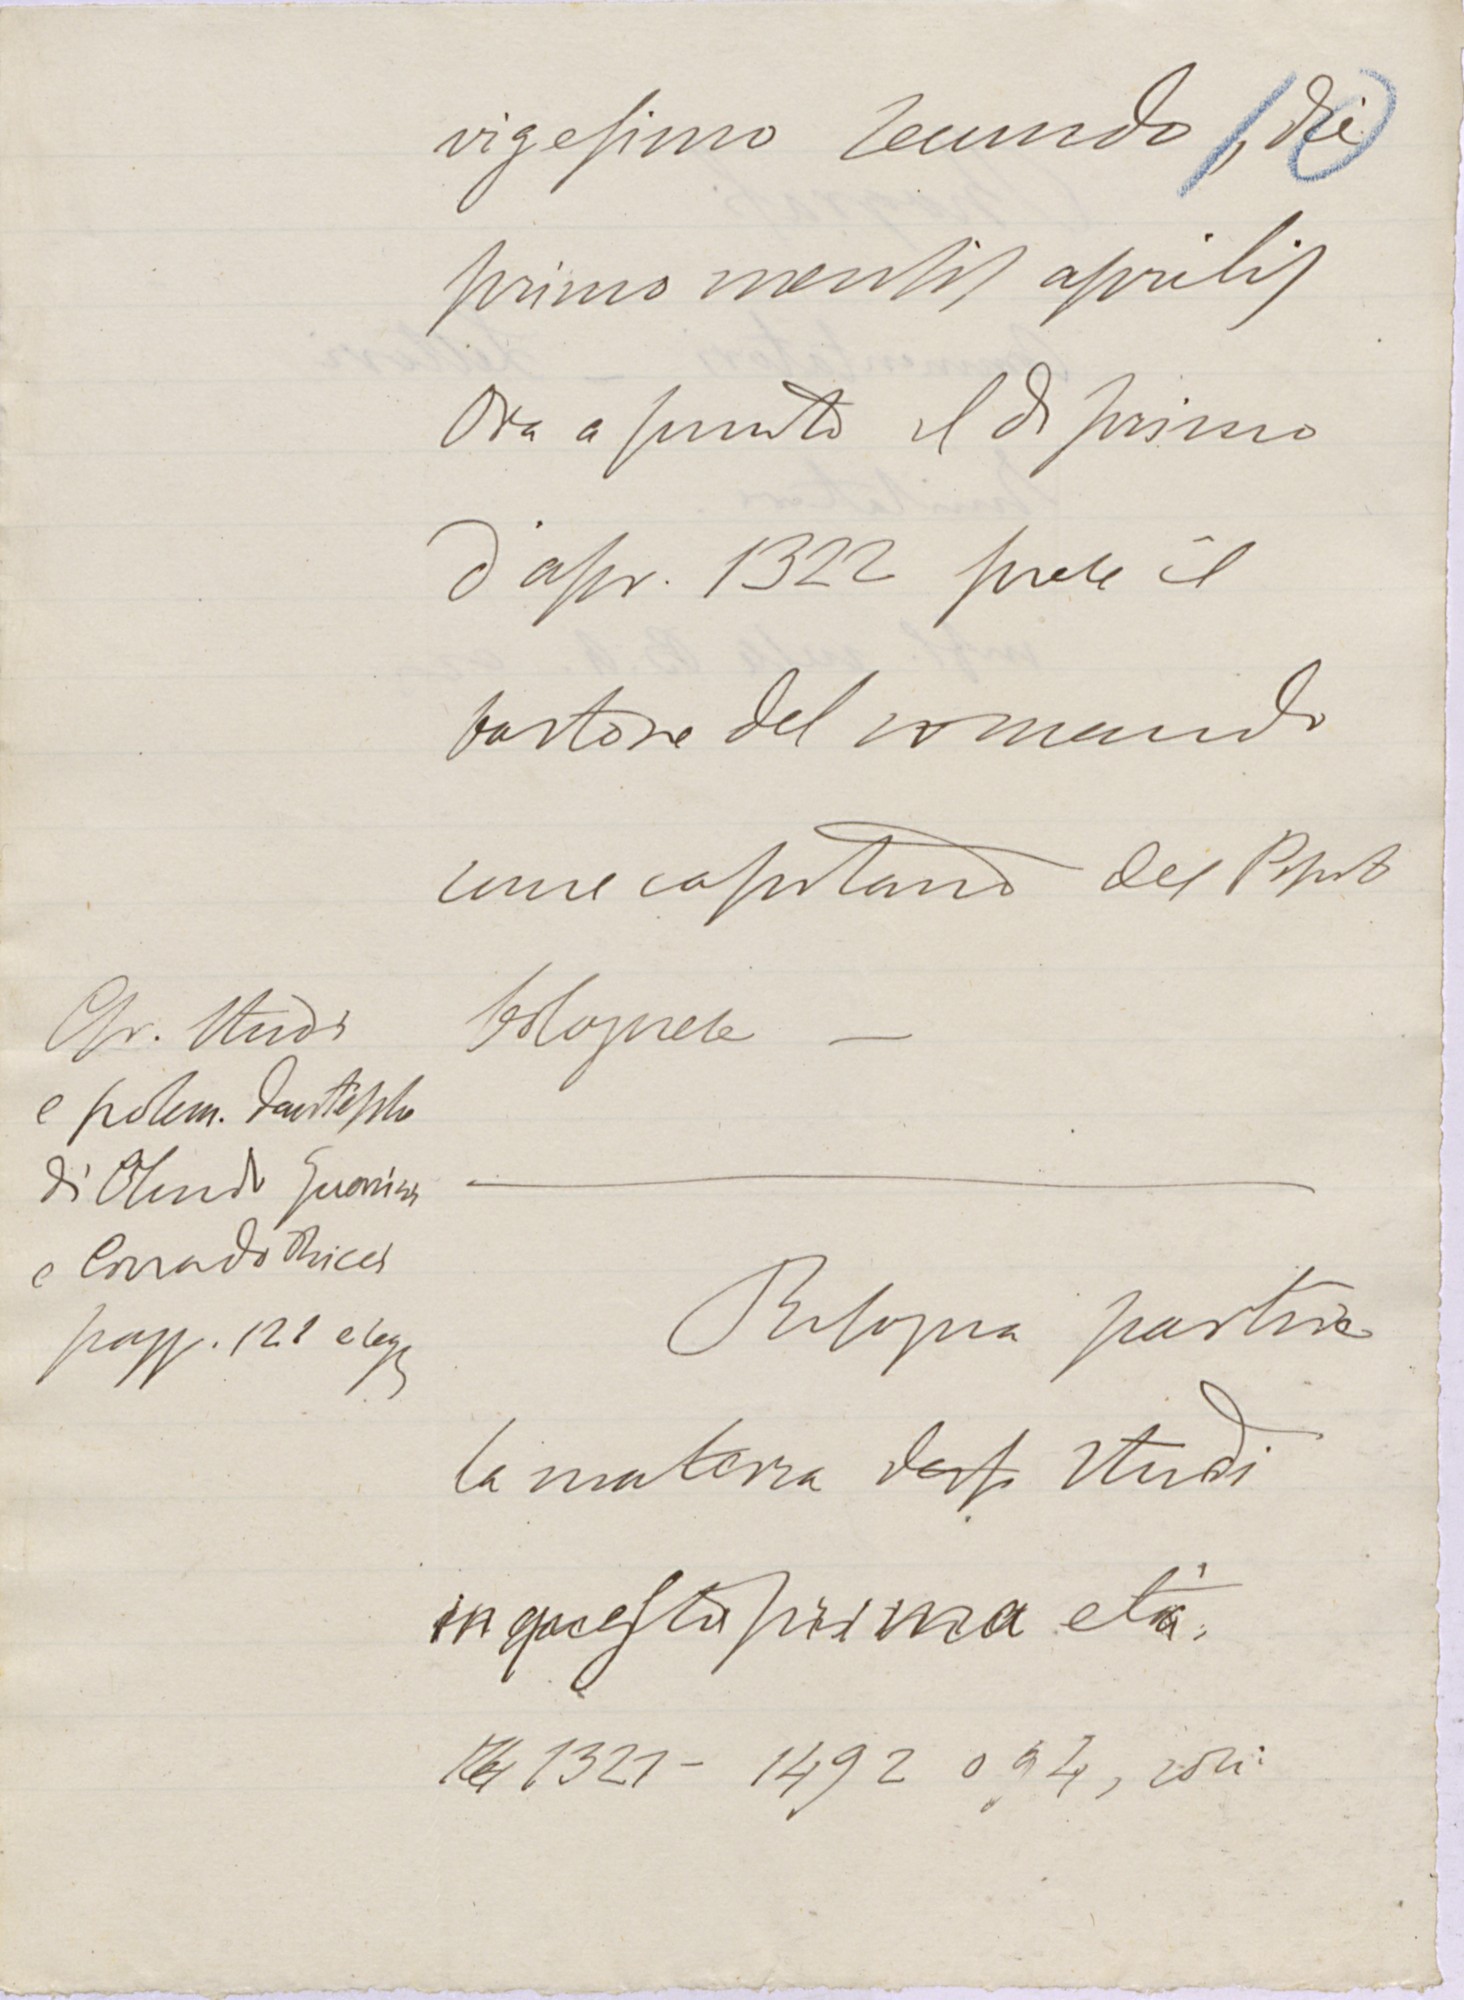 10
vigesimo secundo, die
primo mensis aprilis
Ora a punto il dì primo
d'apr. 1322 prese il
bastone del comando
come capitano del Popolo
bolognese —
Cfr. Studi
e polem. dantesche
di Olindo Guerrini
e Corrado Ricci
pagg. 121 e segg
Bologna partire
la materia degli studi
in questa prima età.
1321 - 1492 o 94, così